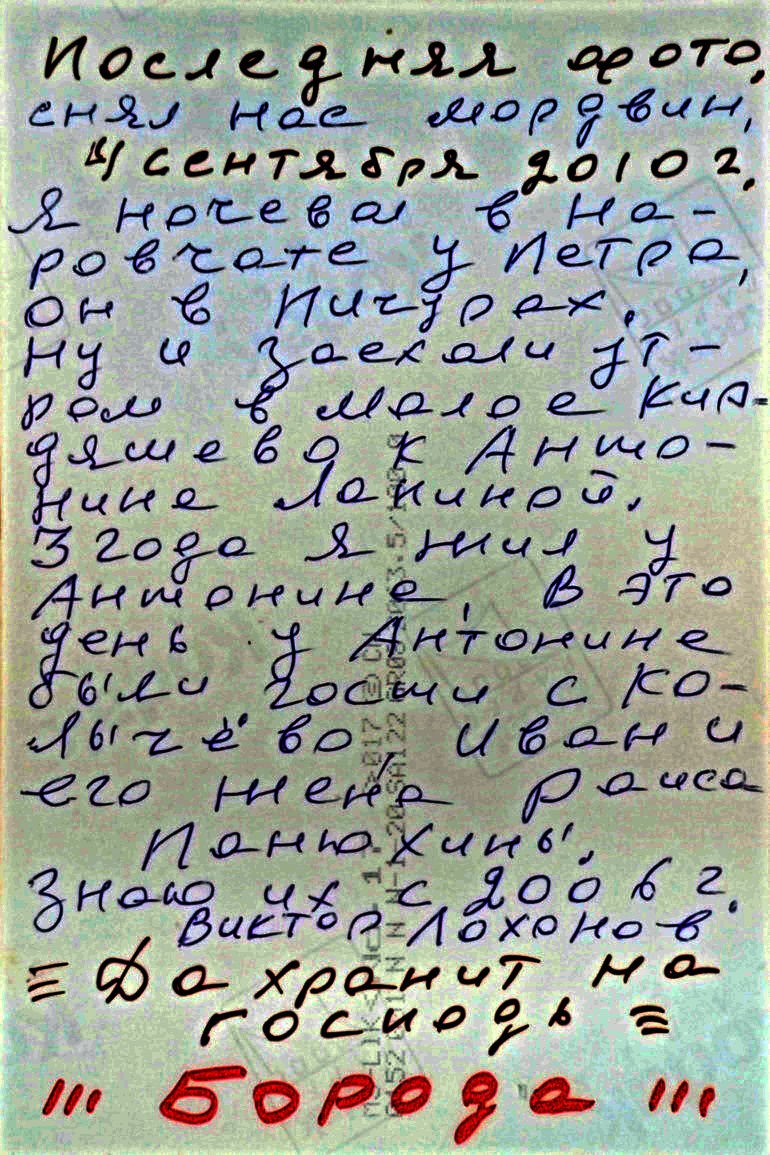 Последняя фото,
снял нас мордвин,
4 сентября 2010 г.
Я ночевал в На-
ровчате у Петра,
он в Пичурах.
Ну и заехали ут-
ром в малое Кир-
дяшево к Анто-
нине Лапиной.
3 года я жил у
Антонине, в это
день у Антонине
были гости с ко-
лычёво Иван и
его жена Раиса
Панюхины.
Знаю их с 2006 г.
Виктор Лоханов
= Да хранит на
господь =
ııı Борода ııı